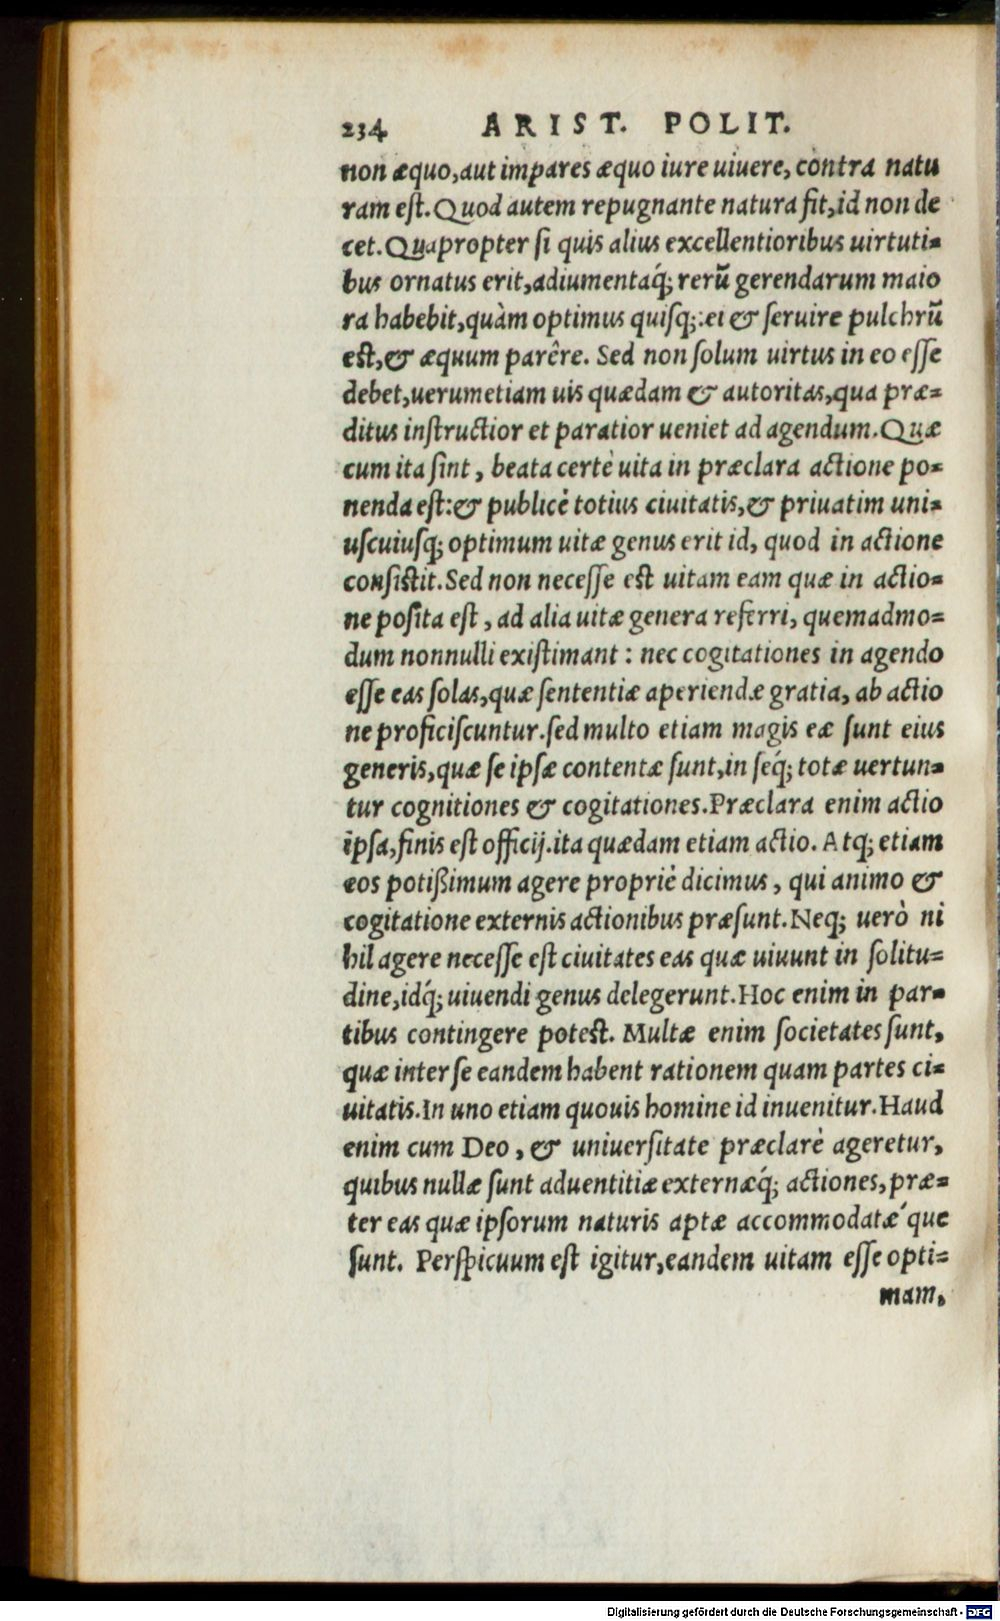 234 ARIST. POLIT.
non æquo,aut impares æquo iure uiuere, contra natu
ram eſt. Quod autem repugnante natura fit,id non de
cet. Quapropter ſi quis alius excellentioribus uirtuti=
bus ornatus erit,adiumentaq́; rerū gerendarum maio
ra habebit,quàm optimus quiſq;:ei & ſeruire pulchrū
est,& æquum parêre. Sed non ſolum uirtus in eo eſſe
debet,uerumetiam uis quædam & autoritas,qua præ=
ditus inſtructior et paratior ueniet ad agendum. Quæ
cum ita ſint, beata certè uita in præclara actione po=
nenda eſt:& publicè totius ciuitatis,& priuatim uni=
uſcuiuſq; optimum uitæ genus erit id, quod in actione
conſistit. Sed non neceſſe est uitam eam quæ in actio=
ne poſita eſt, ad alia uitæ genera referri, quemadmo=
dum nonnulli exiſtimant: nec cogitationes in agendo
eſſe eas ſolas,quæ ſententiæ aperiendæ gratia, ab actio
ne proficiſcuntur.ſed multo etiam magis eæ ſunt eius
generis,quæ ſe ipſæ contentæ ſunt,in ſeq́; totæ uertun=
tur cognitiones & cogitationes.Præclara enim actio
ipſa,finis eſt officij.ita quædam etiam actio. Atq; etiam
eos potißimum agere propriè dicimus, qui animo &
cogitatione externis actionibus præſunt. Neq; uerò ni
hil agere neceſſe eſt ciuitates eas quæ uiuunt in ſolitu=
dine,idq́; uiuendi genus delegerunt. Hoc enim in par=
tibus contingere potest. Multæ enim ſocietates ſunt,
quæ inter ſe eandem habent rationem quam partes ci=
uitatis. In uno etiam quouis homine id inuenitur. Haud
enim cum Deo, & uniuerſitate præclarè ageretur,
quibus nullæ ſunt aduentitiæ externæq́; actiones, præ=
ter eas quæ ipſorum naturis aptæ accommodatæ´que
ſunt. Perſpicuum eſt igitur,eandem uitam eſſe opti=
mam,
Digitalisierung gefördert durch die Deutsche Forschungsgemeinschaft - DFG